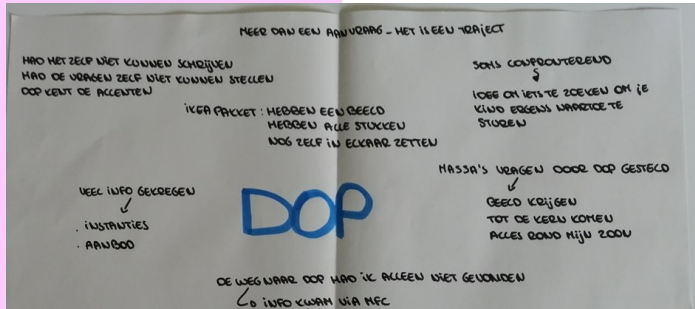 MEER DAN EEN AANVRAAG - HET IS EEN TRAJECT
HAD HET ZELF NIET KUNNEN SCHRIJVEN
HAD DE VRAGEN ZELF NIET KUNNEN STELLEN
DOP KENT DE ACCENTEN
SOMS CONFRONTEREND
↓
IDEE OM IETS TE ZOEKEN OM JE
KIND ERGENS NAARTOE TE
STUREN
IKEA PAKKET: HEBBEN EEN BEELD
HEBBEN ALLE STUKKEN
NOG ZELF IN ELKAAR ZETTEN
MASSA'S VRAGEN DOOR DOP GESTELD
↙
BEELD KRIJGEN
TOT DE KERN KOMEN
ALLES ROND MIJN ZOON
VEEL INFO GEKREGEN
↙
. INSTANTIES
. AANBOD
DOP
DE WEG NAAR DOP HAD IK ALLEEN NIET GEVONDEN
↳ INFO KWAM VIA MFC